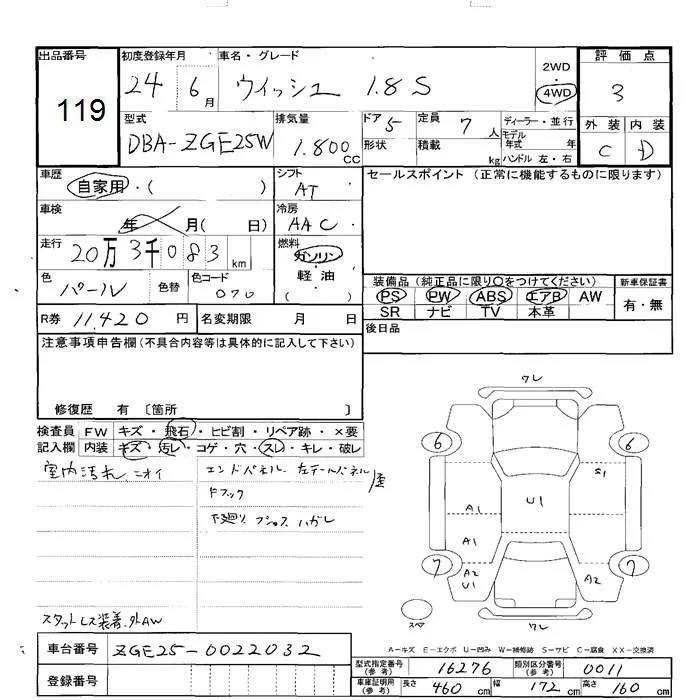 出品番号 初度登録年月 車名・グレード 評価点
119 24 6月 ウィッシュ 1.8S 2WD 4WD 3
型式 排気量 ドア 5 定員 7人 ディーラー・並行 外装 内装
DBA-ZGE25W 1.800CC 形状 積載 kg モデル年式 年 C D
ハンドル 左・右
車歴 自家用・( ) シフト AT セールスポイント (正常に機能するものに限ります)
車検 年 月( 日) 冷房 AAC
走行 20万3千083km 燃料 ガソリン
色 パール 色替 色コード 070 軽油 ( )
装備品 (純正品に限り○をつけてください) 新車保証書
PS PW ABS エアB AW 有・無
SR ナビ TV 本革
R券 11,420円 名変期限 月 日 後日品
注意事項申告欄 (不具合内容等は具体的に記入して下さい)
修復歴 有 〔箇所 〕
検査員 FW キズ・飛石・ヒビ割・リペア跡・×要
記入欄 内装 キズ・汚レ・コゲ・穴・スレ・キレ・破レ
室内汚れ、ニオイ エンドパネル 左テールパネル
Fフック
下廻り ハガレ
スタットレス装着・外AW
ワレ
6 6
S1
U1
A1
A1
7 7
A2 U1 A2
スペ ワレ
A-キズ E-エクボ U-凹み W-補修跡 S-サビ C-腐食 XX-交換済
車台番号 ZGE25-0022032
登録番号
型式指定番号 (参考) 16276 類別区分番号 (参考) 0011
車庫証明用 (参考) 長さ 460cm 幅 172cm 高さ 160cm